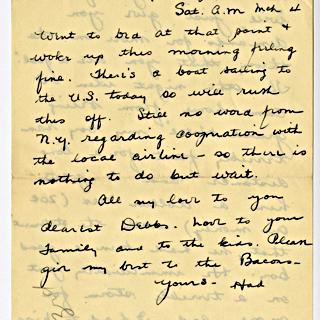 Sat. A.M. Mch 4
Went to bed at that point &
woke up this morning feeling
fine. There's a boat sailing to
the U.S. today so will rush
this off. Still no word from
N.Y. regarding cooperation with
the local airline - so there is
nothing to do but wait.
All my love to you
dearest Debbs. Love to your
family and to the kids. Please
give my best to the Bacons -
Yours - Had